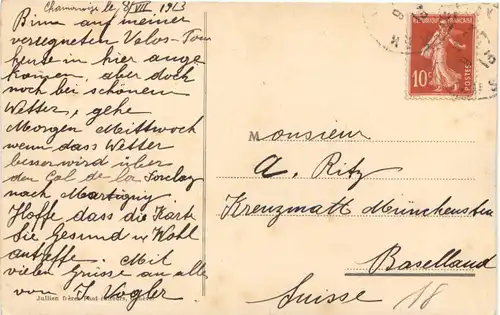 Chamonix le 8/VII 1913
Binn auf meiner
verregneten Velos-Tour
heute in hier ange
komen, aber doch
noch bei schönem
Wetter, gehe
Morgen Mittwoch
wenn dass Wetter
besser wird über
den Col de la Forclaz
nach Martigny.
Hoffe dass die Karte
Sie Gesund u Wohl
antreffe. Mit
vielen Grüsse an alle
von J. Vogler
Jullien frères
REPUBLIQUE FRANÇAISE
10c
POSTES
Monsieur
A. Ritz
Kreuzmatt Münchenstein
Baselland
Suisse
18